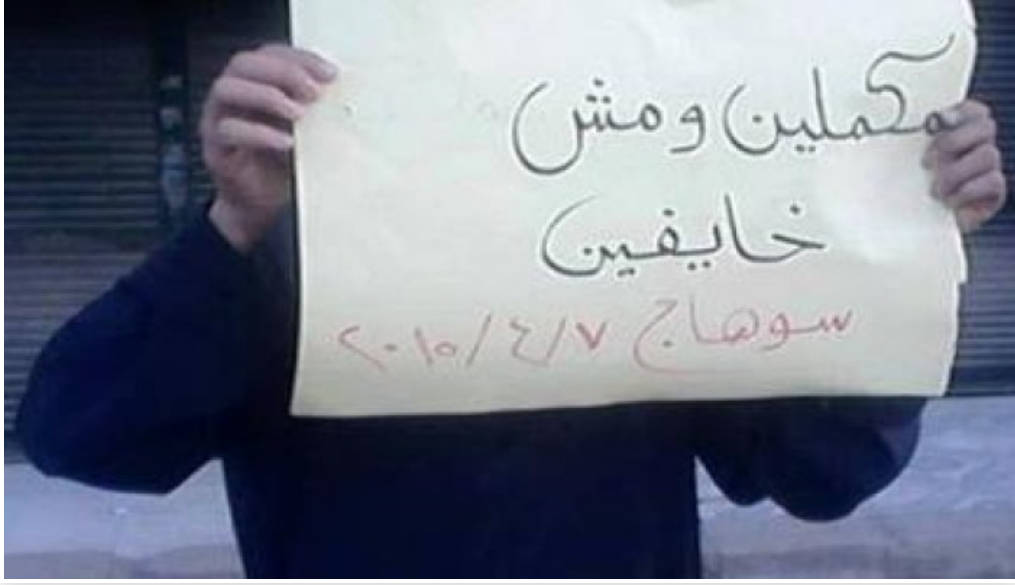 مكملين ومش
خايفين
سوهاج ٧/٤/٢٠١٥